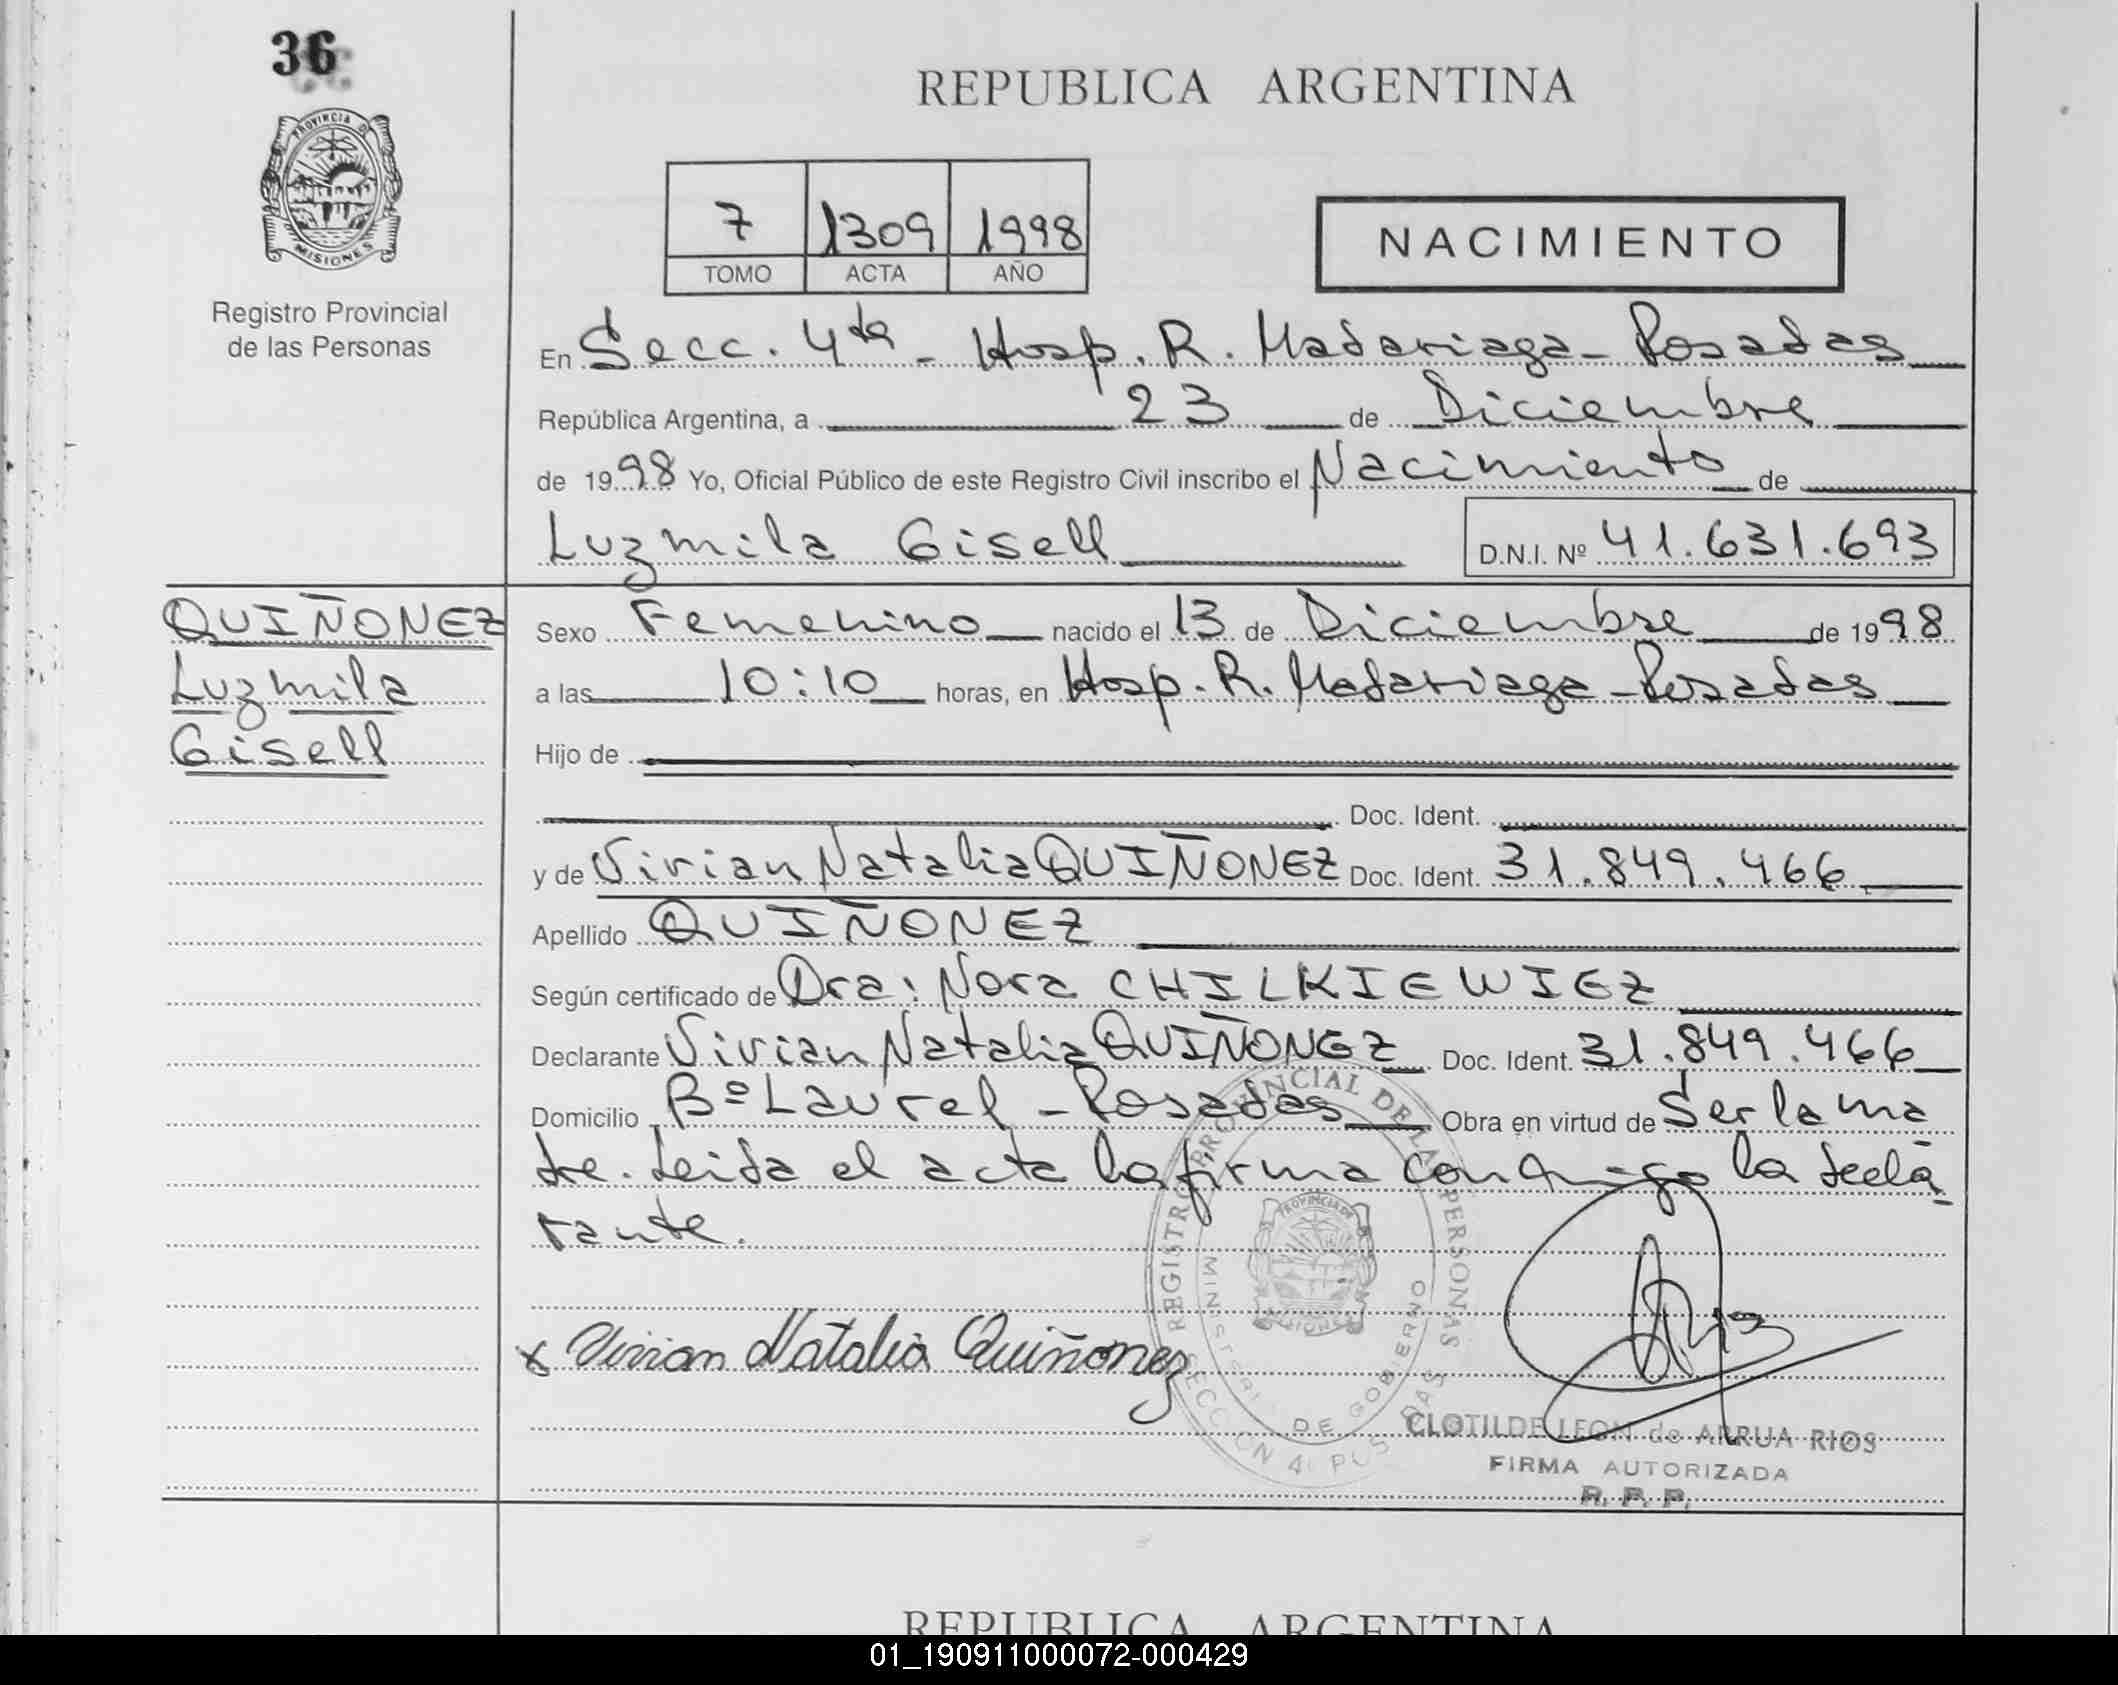 36
PROVINCIA D
MISIONES
Registro Provincial
de las Personas
REPUBLICA ARGENTINA
7 1309 1998
TOMO ACTA AÑO
NACIMIENTO
En Secc. 4ta - Hosp. R. Madariaga - Posadas
República Argentina, a 23 de Diciembre
de 1998 Yo, Oficial Público de este Registro Civil inscribo el Nacimiento de
Luzmila Gisell D.N.I. Nº 41.631.693
QUIÑONEZ
Luzmila
Gisell
Sexo Femenino nacido el 13 de Diciembre de 1998
a las 10:10 horas, en Hosp. R. Madariaga - Posadas
Hijo de
Doc. Ident.
y de Vivian Natalia QUIÑONEZ Doc. Ident. 31.849.466
Apellido QUIÑONEZ
Según certificado de Dra: Nora CHILKIEWIEZ
Declarante Vivian Natalia QUIÑONEZ Doc. Ident. 31.849.466
Domicilio Bº Laurel - Posadas Obra en virtud de Ser la ma
dre. Leida el acta la firma conmigo la decla
rante.
x Vivian Natalia Quiñonez
REGISTRO PROVINCIAL DE LAS PERSONAS
MINISTERIO DE GOBIERNO
PROVINCIA DE
MISIONES
CLOTILDE LEON de ARRUA RIOS
FIRMA AUTORIZADA
R. P. P.
REPUBLICA ARGENTINA
01_190911000072-000429